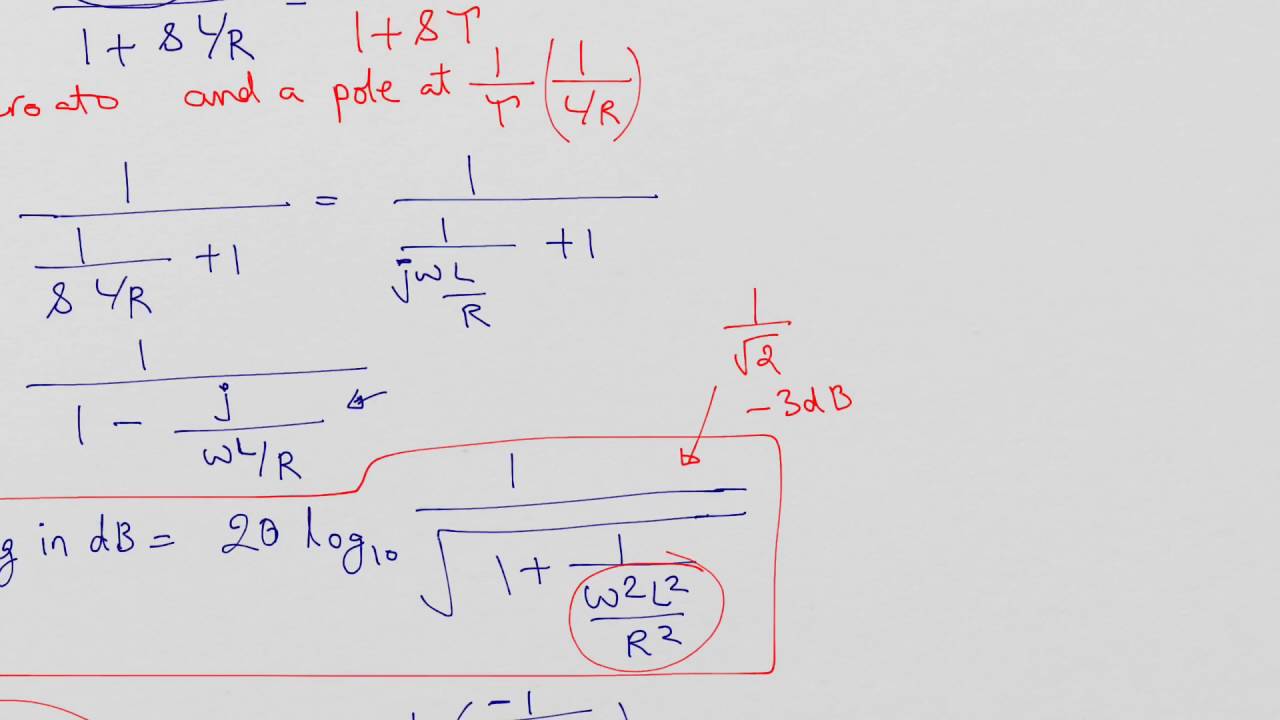 1 + s L/R    1 + sτ
ro at 0 and a pole at 1/τ (1/(L/R))
1/(1/(s L/R) + 1) = 1/(1/(jω L/R) + 1)
1/√2
1/(1 - j/(ωL/R))
-3dB
g in dB = 20 log₁₀ 1/√(1 + 1/(ω²L²/R²))
(-1